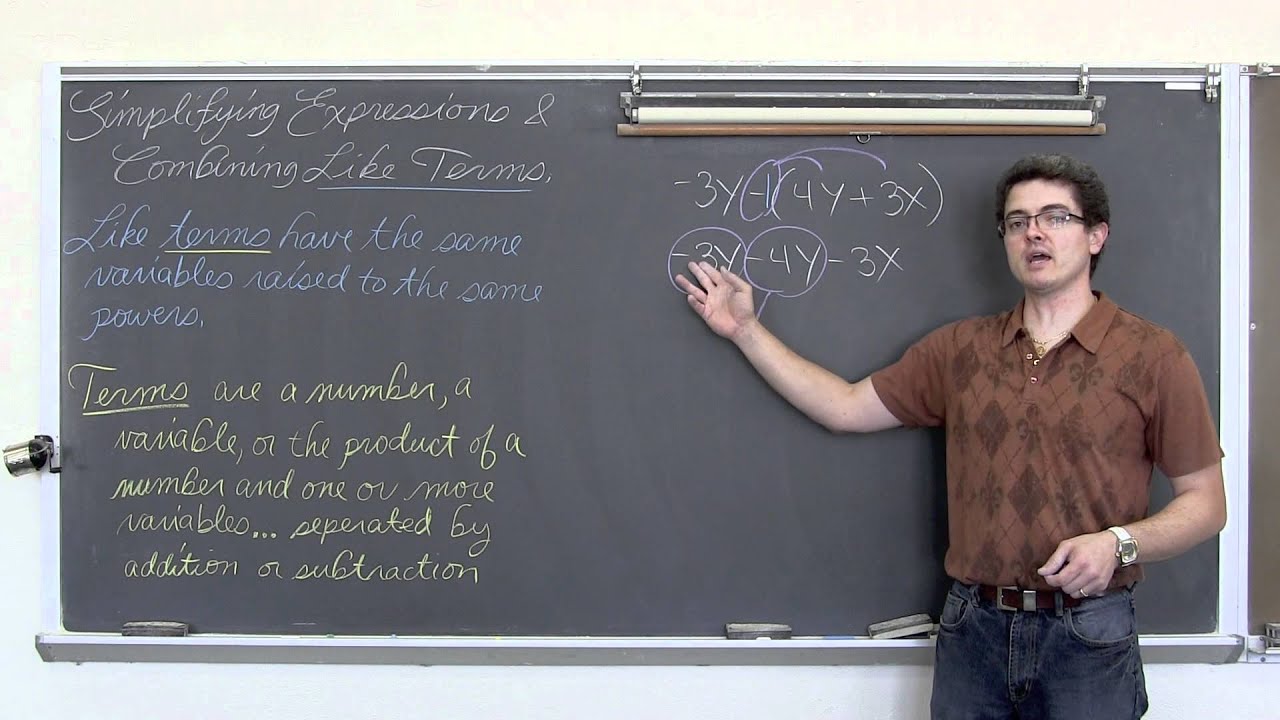 Simplifying Expressions &
Combining Like Terms.
Like terms have the same
variables raised to the same
powers.
Terms are a number, a
variable, or the product of a
number and one or more
variables... seperated by
addition or subtraction
-3Y-1(4Y+3X)
-3Y-4Y-3X